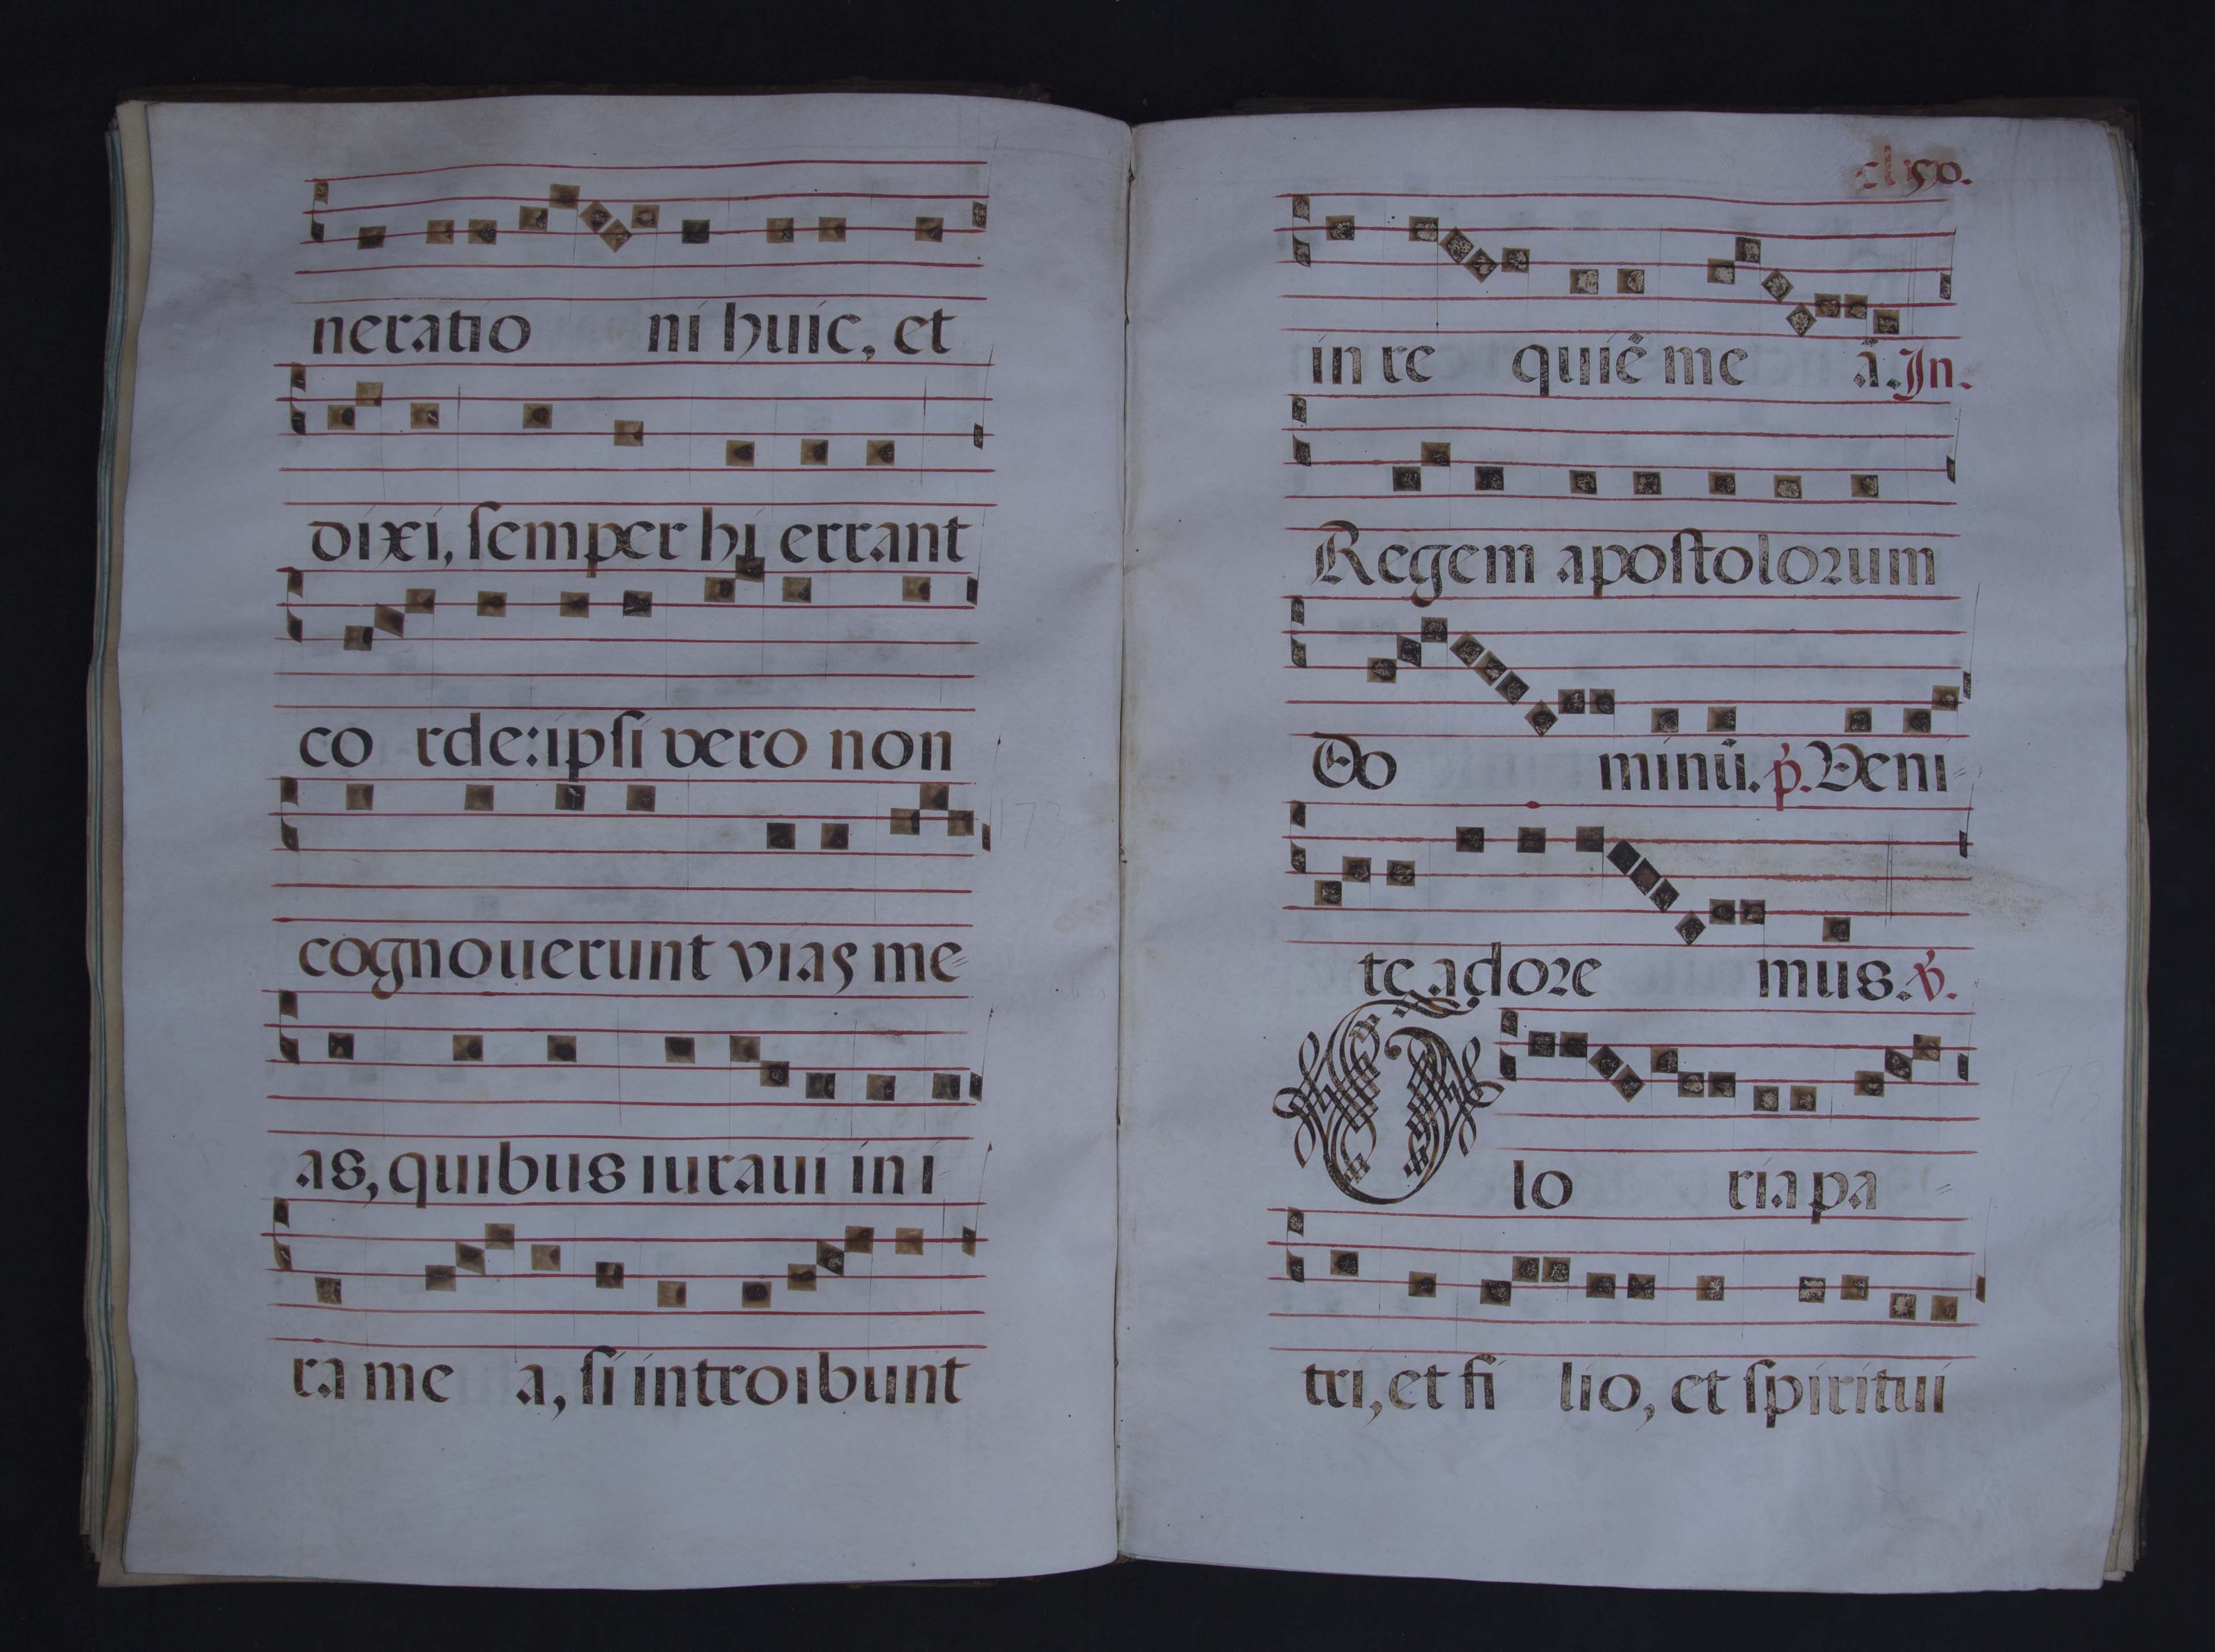 neratio ni huic, et
dixi, semper hi errant
co rde: ipsi vero non
cognouerunt vias me=
as, quibus iuraui in i=
ra me a, si introibunt
50.
in re quiē me ā. In.
Regem apostolorum
Do minū. p̄. Veni=
te adore mus. v̄.
Glo ria pa=
tri, et fi lio, et spiritui